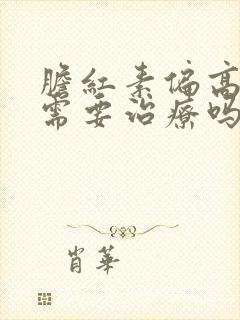 膽紅素偏高
需要治療嗎
肖華